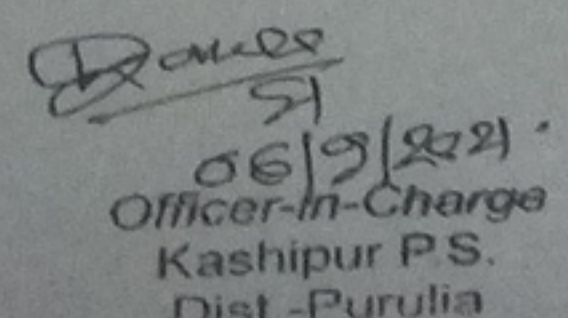 SI
06/9/2021.
Officer-In-Charge
Kashipur P.S.
Dist.-Purulia